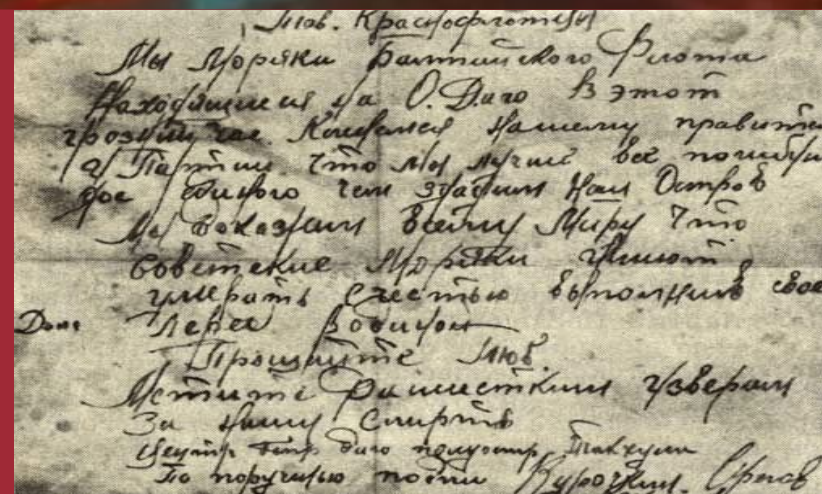 Тов. Краснофлотцы
Мы Моряки Балтийского Флота
Находящиеся на О. Даго В этот
грозный час Клянемся Нашему правите
и Партии Что Мы лучше все погибн
до единого чем здадим Наш Остров
Мы докажем Всему Миру Что
Советские Моряки умеют
умерать С честью выполнив свое
Долг Перед Родиной
Прощайте Тов.
Мстите Фашистким Изверам
За нашу Смерть
полуостр. Тахкуна
По поручению подпи Курочкин. Орлов